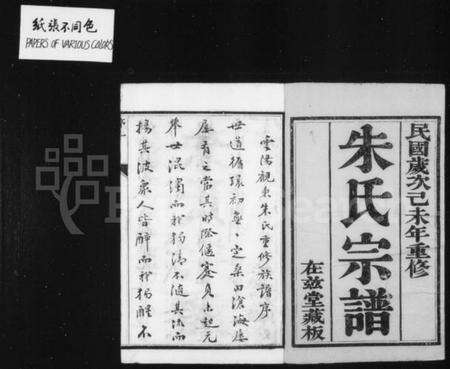 紙張不同色
PAPERS OF VARIOUS COLORS
民國歲次己未年重修
朱氏宗譜
在茲堂藏板
雲陽觀東朱氏重修族譜序
世道循環初無一定桑田滄海歷
屢有之當其時際偃蹇貞未起元
舉世混濁而我獨清不隨其流而
揚其波衆人皆醉而我獨醒不